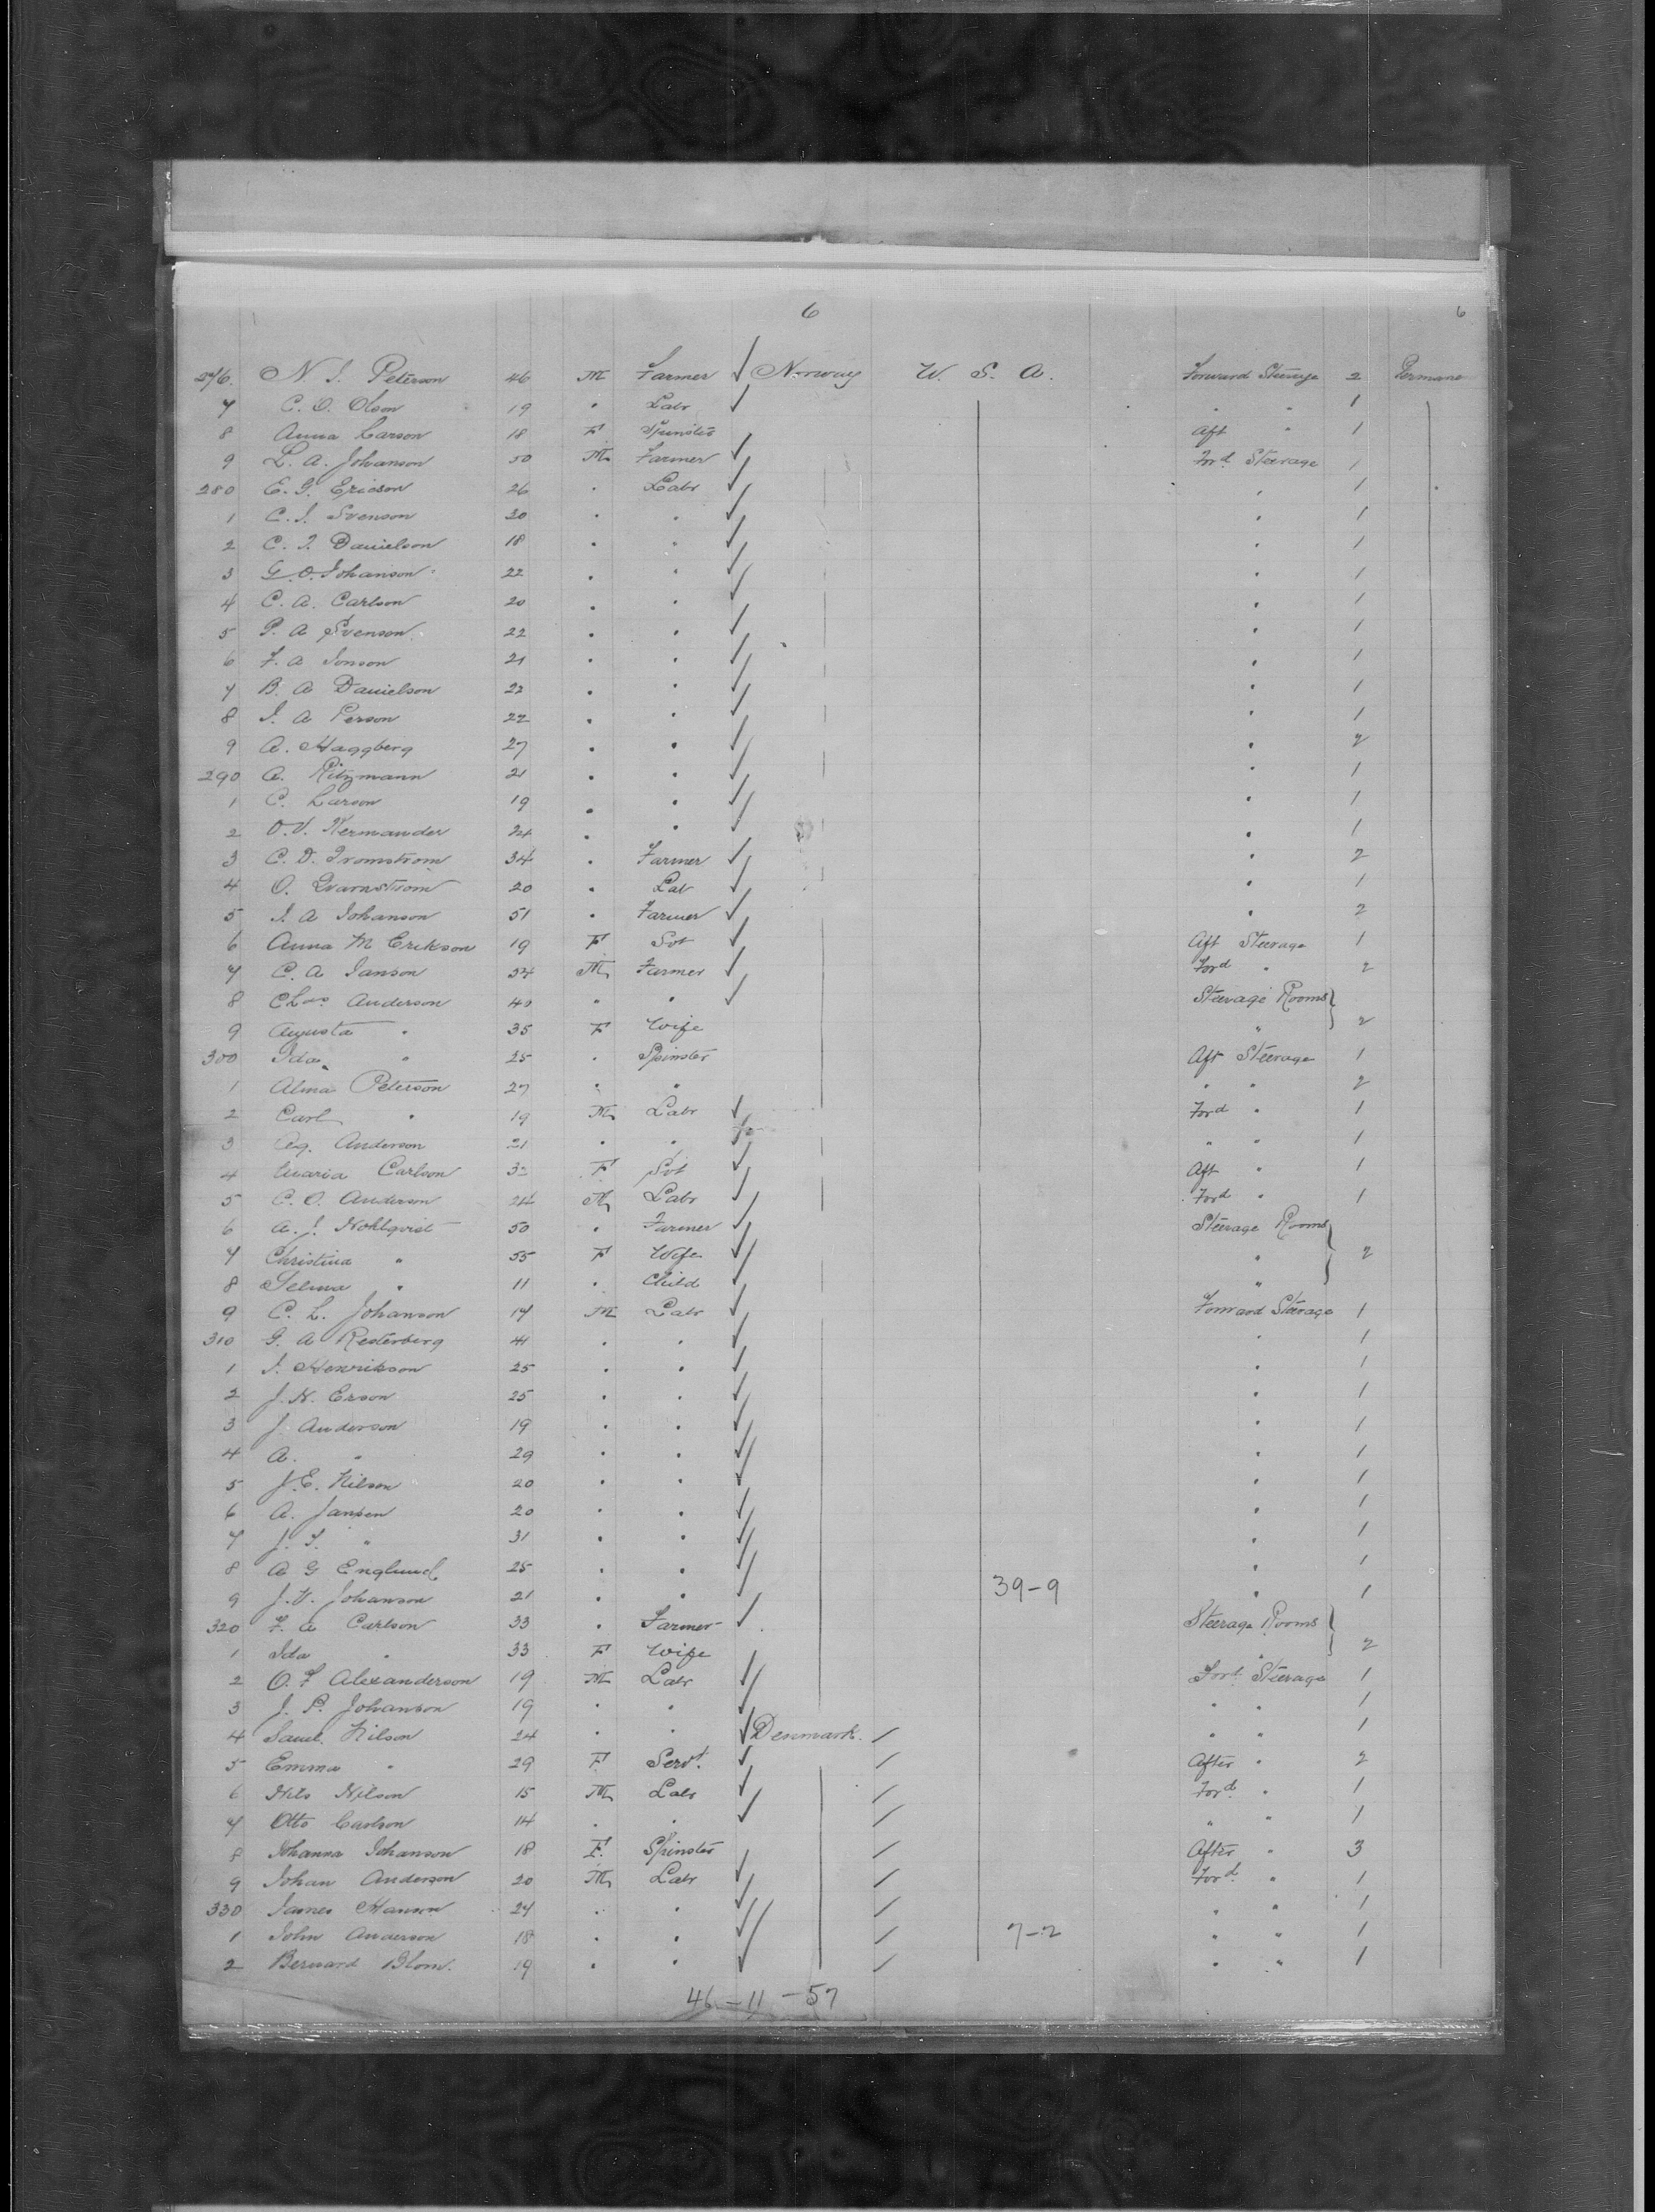 6 6
276. N. J. Peterson 46 M Farmer Norway U. S. A. Forward Steerage 2 Permane
7 C. O. Olson 19 " Labr " " 1
8 Anna Larson 18 F Spinster Aft " 1
9 L. A. Johanson 50 M Farmer Ford Steerage 1
280 E. G. Ericson 26 " Labr " 1
1 C. J. Svenson 20 " " " 1
2 C. J. Danielson 18 " " " 1
3 G. O. Johanson 22 " " " 1
4 C. A. Carlson 20 " " " 1
5 P. A Svenson 22 " " " 1
6 F. A Jonson 21 " " " 1
7 B. A Danielson 22 " " " 1
8 J. A Person 22 " " " 1
9 A. Haggberg 27 " " " 2
290 A. Ritzmann 21 " " " 1
1 C. Larson 19 " " " 1
2 O. V. Kermander 24 " " " 1
3 C. D. 34 " Farmer " 2
4 O. Qvarnstrom 20 " Lab " 1
5 J. A Johanson 51 " Farmer " 2
6 Anna M Erikson 19 F Svt Aft Steerage 1
7 C. A Janson 34 M Farmer Ford " 2
8 Chas Anderson 40 " " Steerage Rooms
9 Augusta " 35 F Wife " 2
300 Ida " 25 " Spinster Aft Steerage 1
1 Alma Peterson 27 " " " " 2
2 Carl " 19 M Labr Ford " 1
3 Aug. Anderson 21 " " " " 1
4 Maria Carlson 32 F Svt Aft " 1
5 C. O. Anderson 24 M Labr Ford " 1
6 A. J. Nohlqvist 50 " Farmer Steerage Rooms
7 Christina " 55 F Wife " 2
8 Selma " 11 " Child "
9 C. L. Johanson 17 M Labr Forward Steerage 1
310 G. A Resterberg 41 " " " 1
1 J. Henrikson 25 " " " 1
2 J. N. Erson 25 " " " 1
3 J. Anderson 19 " " " 1
4 A. " 29 " " " 1
5 J. E. Nilson 20 " " " 1
6 A. Jansen 20 " " " 1
7 J. " 31 " " " 1
8 A G Englund 25 " " " 1
9 J. V. Johanson 21 " " 39-9 " 1
320 F. A Carlson 33 " Farmer Steerage Rooms
1 Ida " 33 F Wife " 2
2 O. F Alexanderson 19 M Labr Ford Steerage 1
3 J. P. Johanson 19 " " " " 1
4 Saml. Nilson 24 " " Denmark. " " 1
5 Emma " 29 F Servt. After " 2
6 Nils Nilson 15 M Labr Ford " 1
7 Otto Carlson 14 " " " " 1
8 Johanna Johanson 18 F. Spinster After " 3
9 Johan Anderson 20 M Labr Ford " 1
330 James Hansen 24 " " " " 1
1 John Anderson 18 " " 7-2 " " 1
2 Bernard Blom. 19 " " " " 1
46-11-57